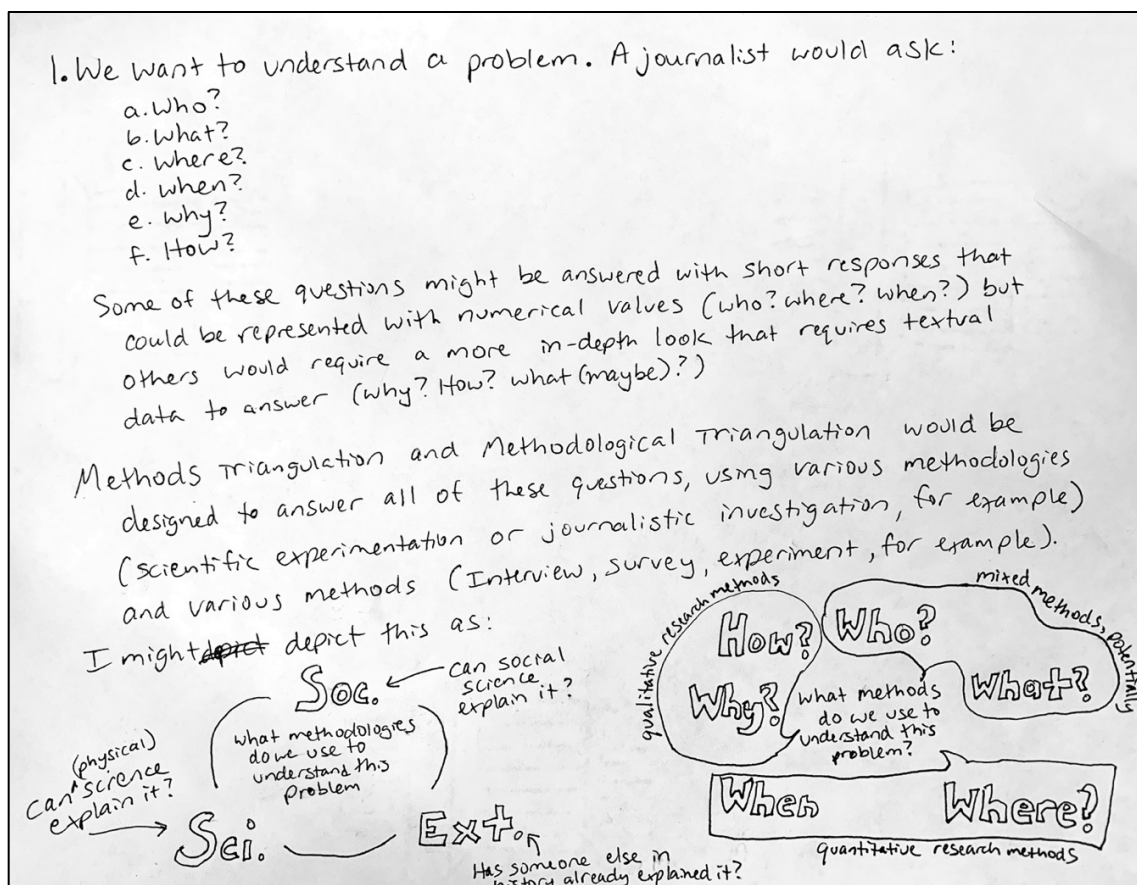 1. We want to understand a problem. A journalist would ask:
a. Who?
b. What?
c. Where?
d. When?
e. Why?
f. How?
Some of these questions might be answered with short responses that
could be represented with numerical values (who? where? when?) but
others would require a more in-depth look that requires textual
data to answer (why? How? what (maybe)?)
Methods Triangulation and Methodological Triangulation would be
designed to answer all of these questions, using various methodologies
(scientific experimentation or journalistic investigation, for example)
and various methods (Interview, survey, experiment, for example).
I might depict depict this as:
Soc.
can social
science
explain it?
what methodologies
do we use to
understand this
problem
can ^ (physical) science
explain it?
Sci.
Ext.
Has someone else in
history already explained it?
qualitative research methods
How?
Why?
mixed methods, potentially
Who?
What?
what methods
do we use to
understand this
problem?
When
Where?
quantitative research methods